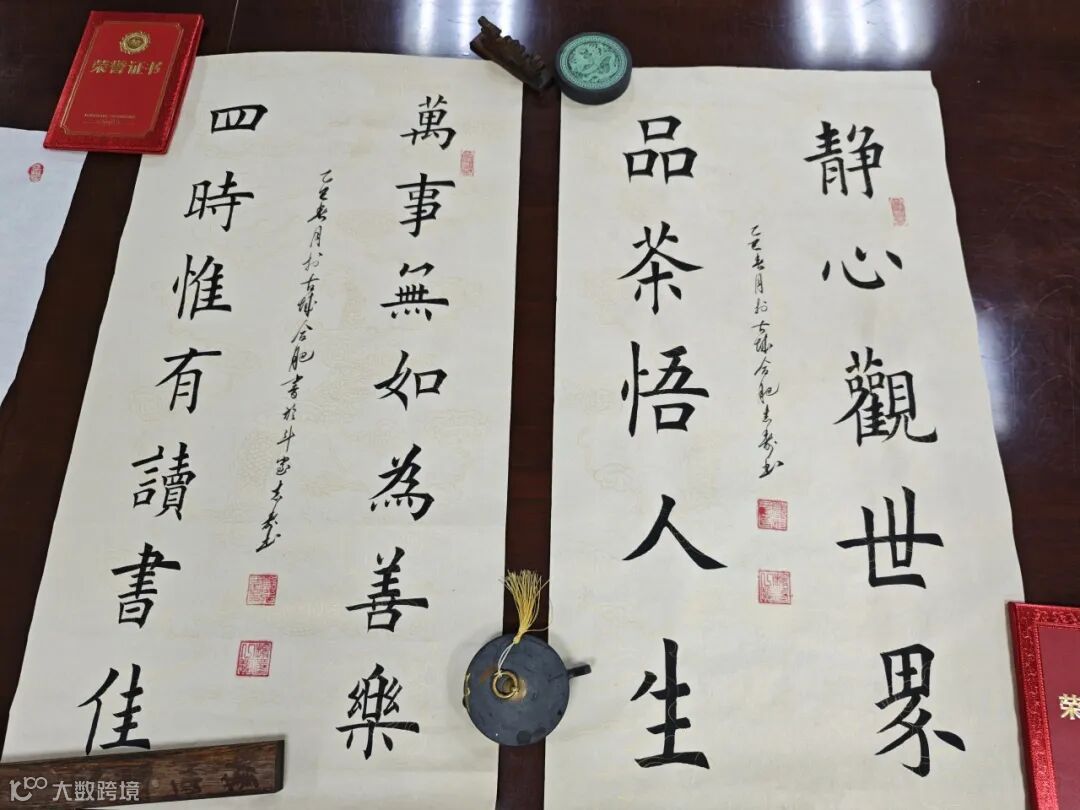 靜心觀世界
品茶悟人生
乙巳春月於古城合肥
萬事無如為善樂
四時惟有讀書佳
乙巳春月於古城合肥書於斗室
荣誉证书
荣
大数跨境